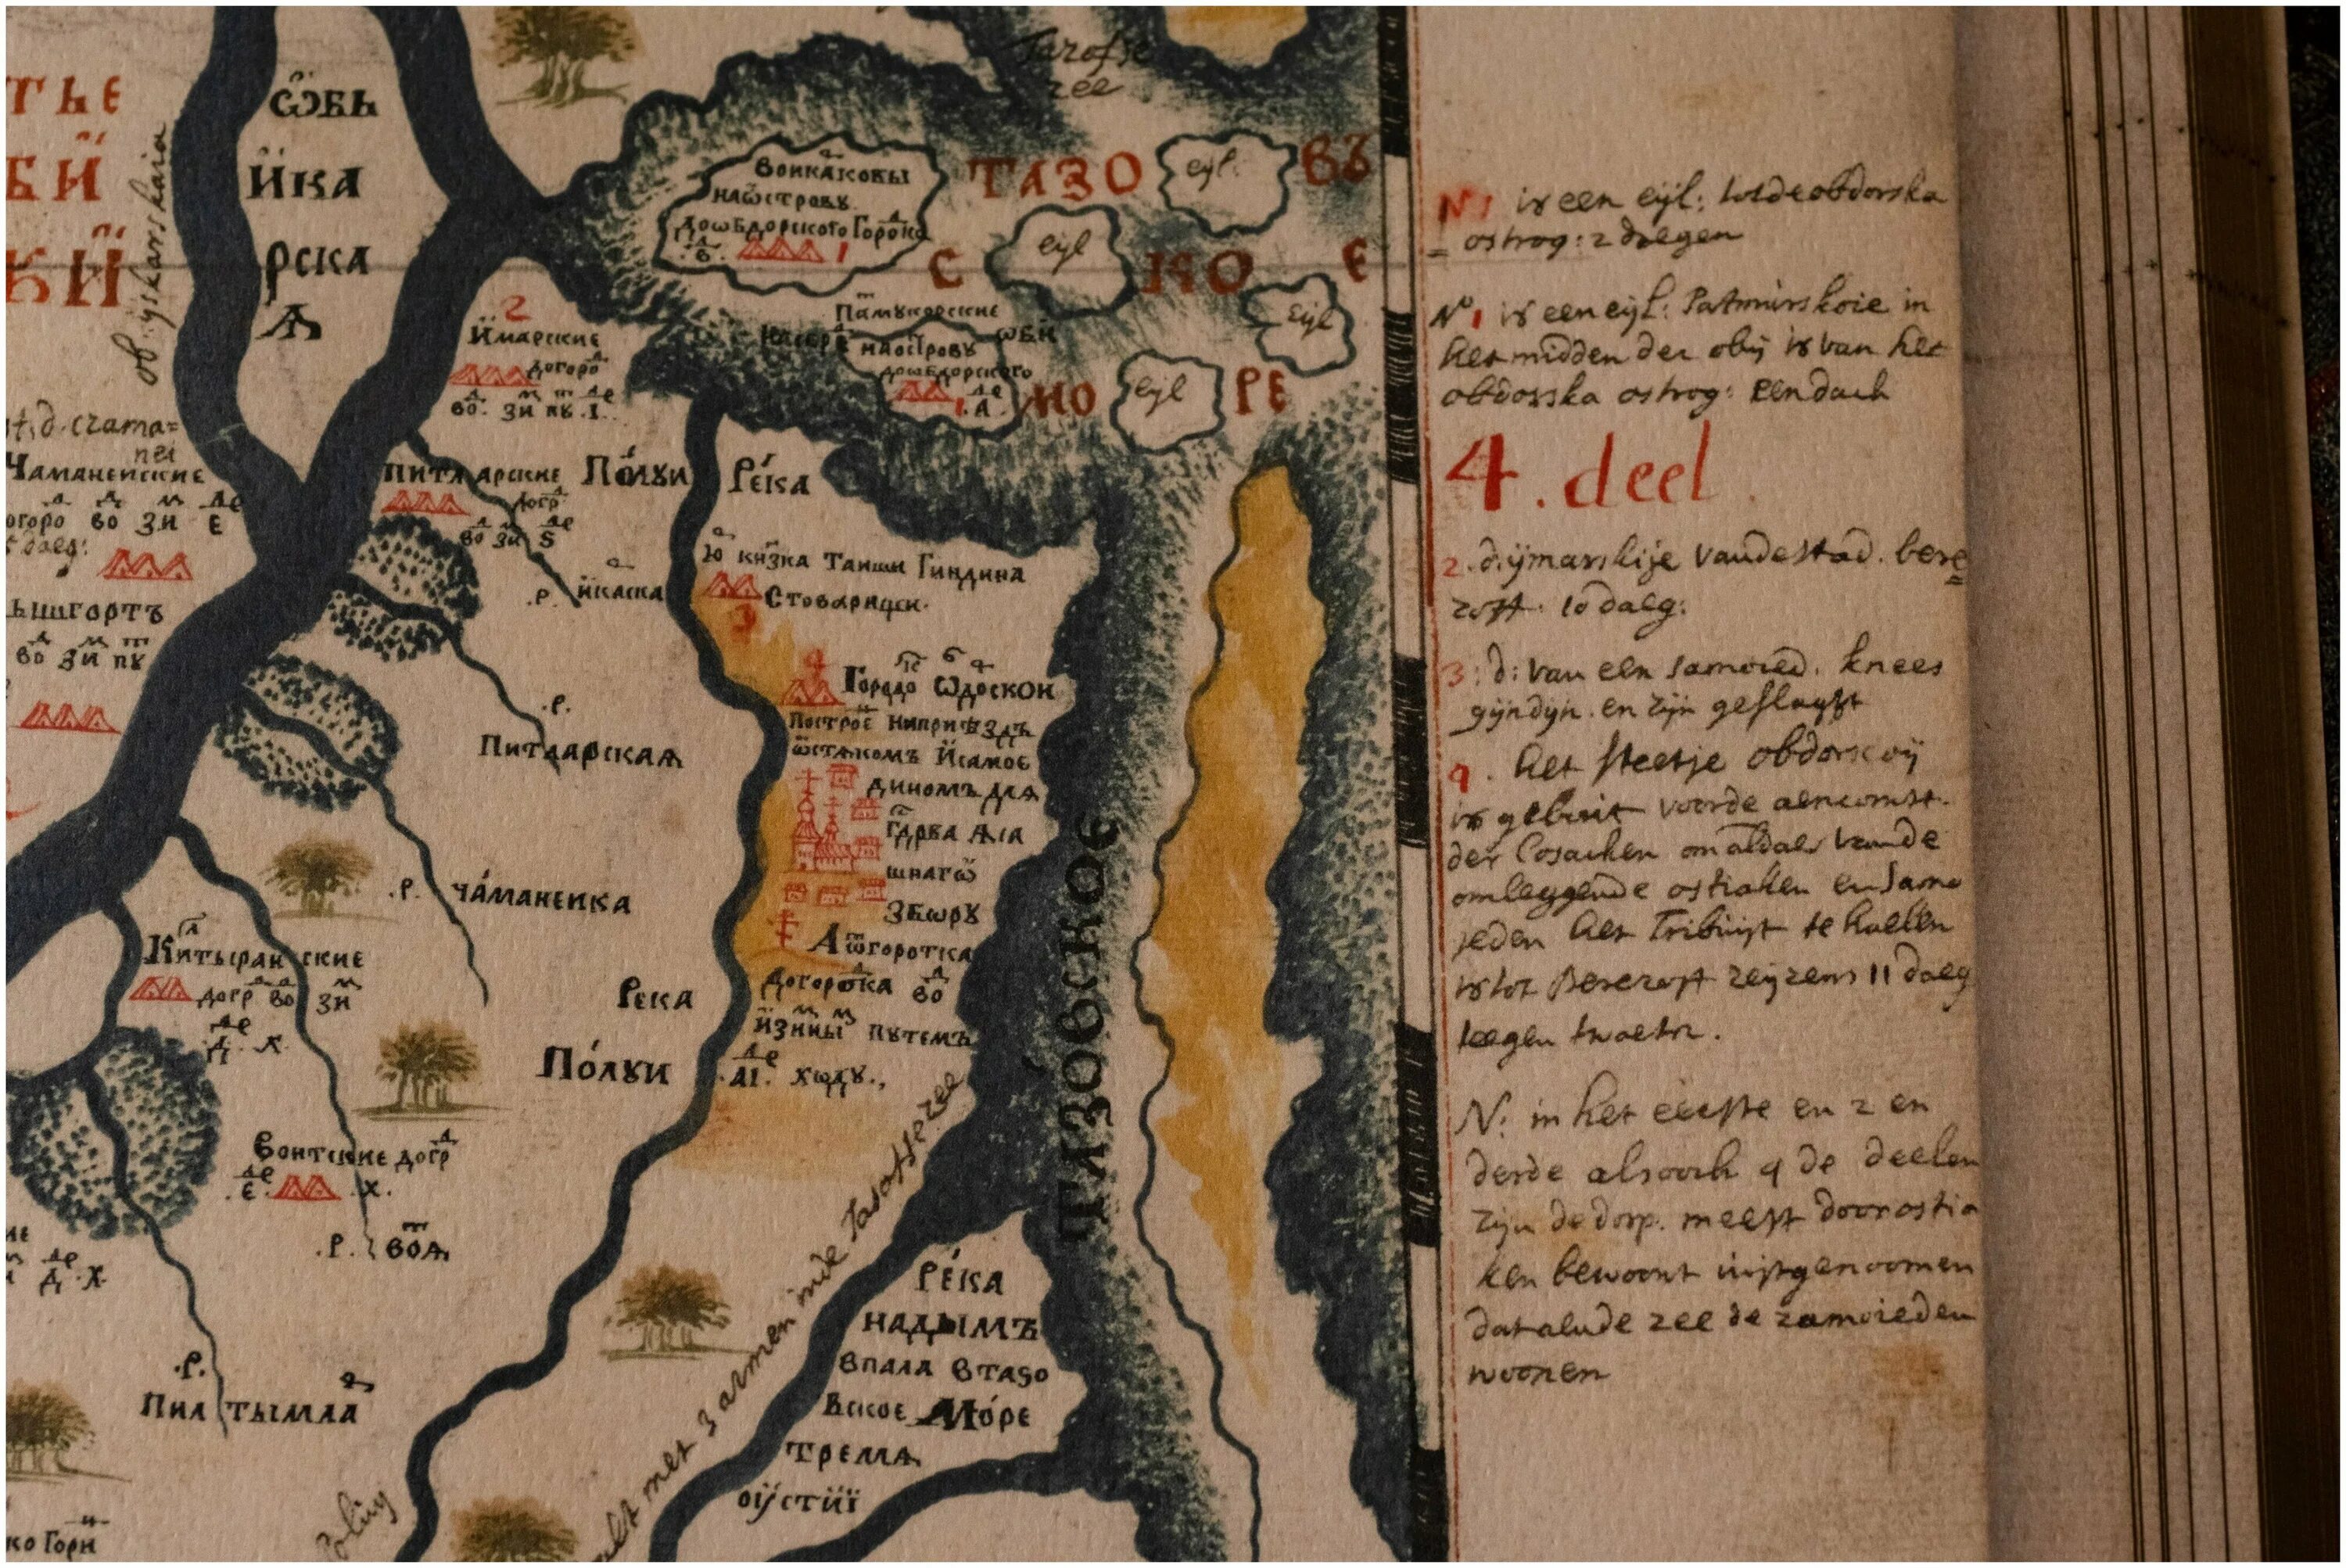 ТЬЕ
БИ
КИ
ѾБЬ
ИКА
РСКА
Ѧ
ob: ijskarskaia
Tazofse
zee
ВОИКАКОВЫ
ДОѠБДОРСКОГО ГОРОКА
.В. 1
ТАЗО eyl: ВЪ
С eyl КО Е
eyl
МО eyl РЕ
ПАМУКОРСКИЕ
НАОСТРОВУ ѠБИ
ДОѠБДОРСКОГО
1 .А.
2
ИМАРСКИЕ
ДОГОРО
ВО. ЗИ ПУ. І.
st. d. czama=
nei
ЧАМАНЕИСКИЕ
ОГОРО ВО ЗИ Е
daeg:
ЬИШГОРТЪ
ВО ЗИ ПУ
ПИТЛАРСКИЕ
ДОГР
ВО ЗИ Ѕ
ПО́ЛУИ РЕ́КА
.Р. ИКАСКА
Ю КНЯЗКА ТАИШИ ГИНДИНА
СТОВАРИЩИ.
3
4
ГОРОДО ѠДОСКОИ
ПОСТРОЕ НИПРИѢЗДЪ
ѾСТАКОМЪ ИСАМОЕ
ДИНОМЪ ДЛѦ
ГДРВА ѦСА
ШНАГѠ
ЗБѠРУ
А ѾГОРОТКА
ДОГОРОКА ВО
ИЗИНЫ ПУТЕМЪ
.АІ. ХѠДУ.,
.Р.
ПИТЛАРСКАѦ
.Р. ЧА́МАНЕИКА
КИТЫРАНСКИЕ
ДОГР ВО ЗИ
.Д. Х.
ВОИТСКИЕ ДОГР
.Е. .Х.
.Р. ВОѦ
Д. Х.
РЕКА
ПО́ЛУИ
ТАЗО́ВСКОЕ
.Р.
ПИЛТЫМЛА
КО ГОРИ
Poluy
valt met 3 armen inde Tasofse zee
РЕ́КА
НАДЫМЪ
ВПАЛА ВТАЗО
ВСКОЕ МО́РЕ
ТРЕМѦ
ОУСТИІ
No 1 is een eyl: totde obdorska
= ostrog: 2 daegen
No 1 is een eyl: Patmurskoie in
het midden der obij is van het
obdorska ostrog: een dach
4. deel.
2. d. ijmarskije vande stad. bere=
zoff. 10 daeg:
3: d: van een samoied. knees
gijndijn. en zijn geslagt
4. het steetje obdorscoij
is gebuit voorde aencomst.
der Cosacken om aldaer vande
omleggende ostiaken en samo
jeden het Tribuijt te haelen
is tot Berezoff reyzens 11 daeg
teegen twaeter.
N: in het eerste en 2 en
derde alsoock 4 de deelen
zijn de dorp. meest door ostia
ken bewoont uijtgenoomen
dat aende zee de zamoieden
woonen